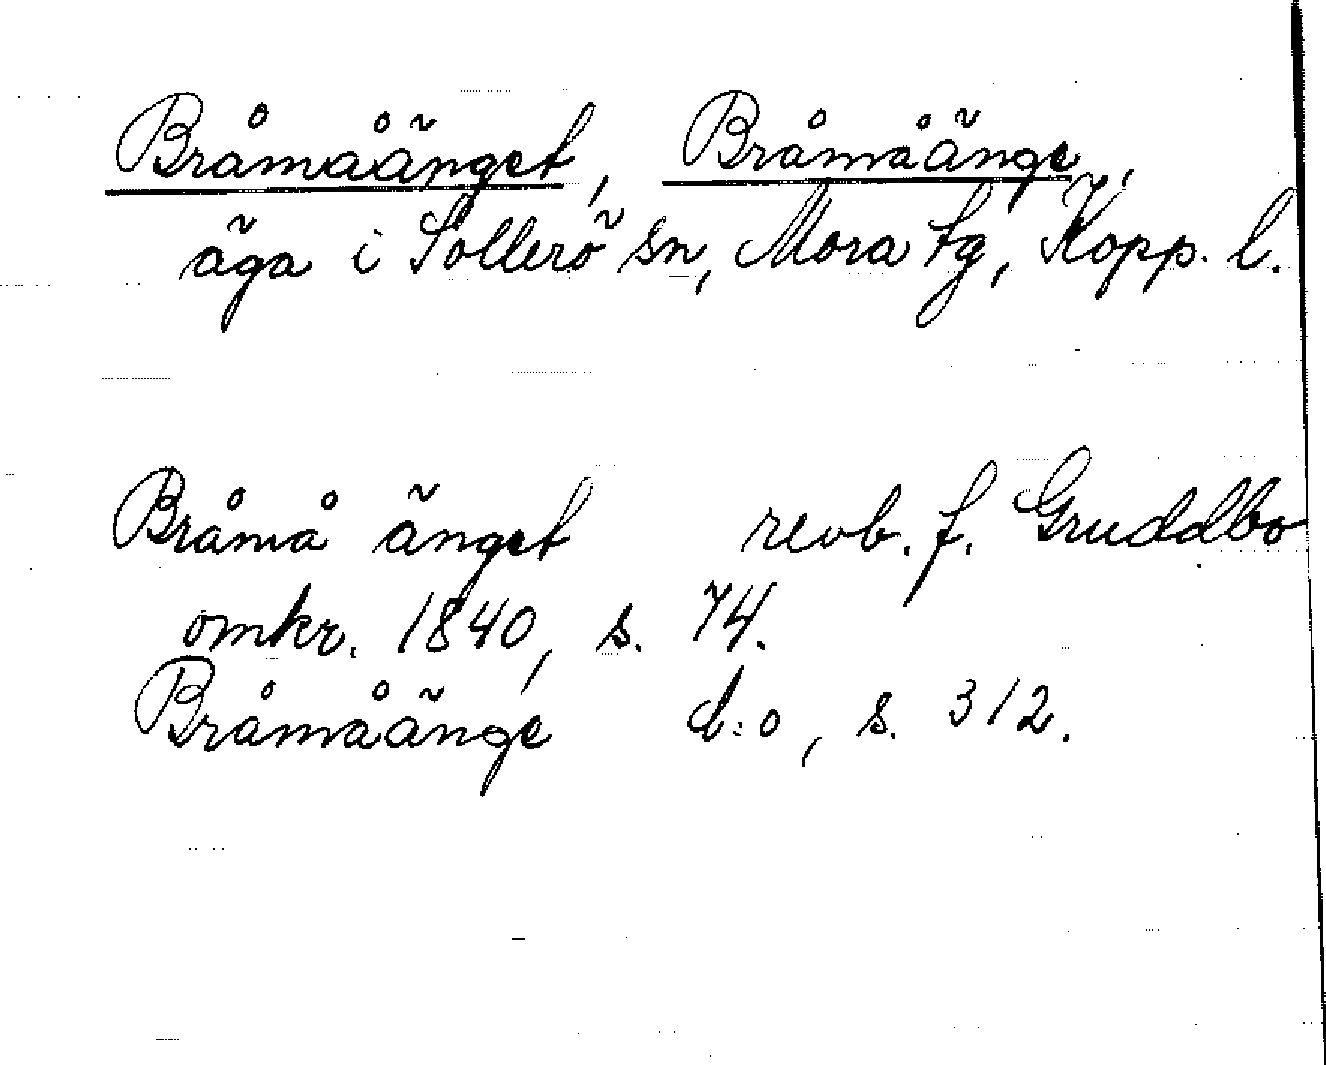 Bråmåänget, Bråmåänge,
äga i Sollerö sn, Mora tg, Kopp. l.
Bråmå änget revb. f. Gruddbo
omkr. 1840, s. 74.
Bråmåänge d:o, s. 312.